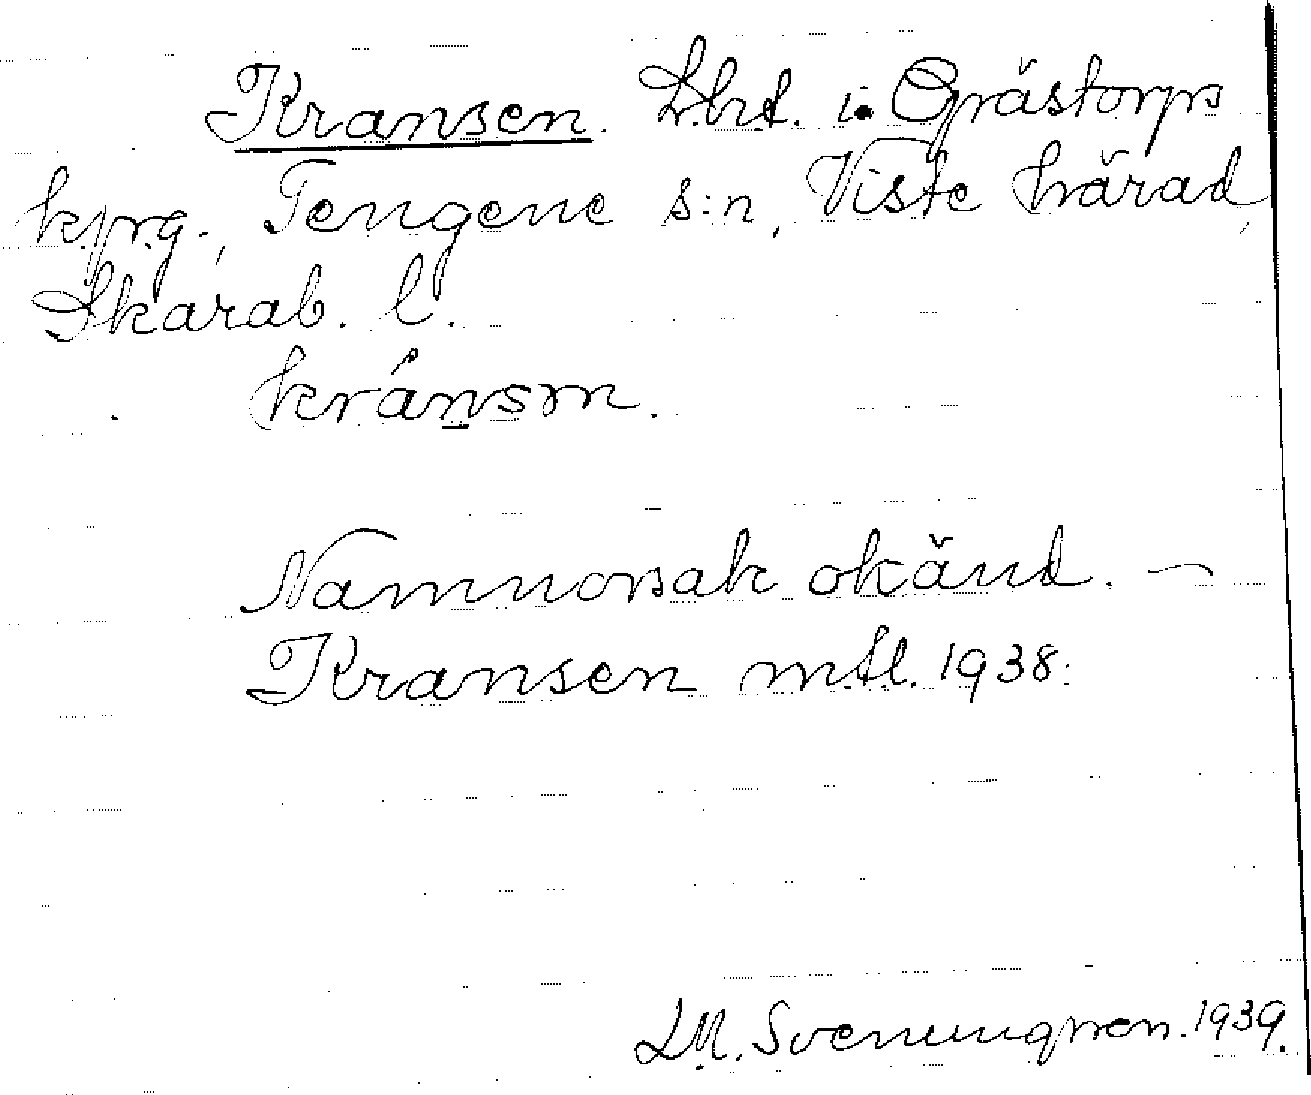 Kransen. Lht. i Grästorps
kpg., Tengene s:n, Viste härad,
Skarab. l.
kránsm.
Namnorsak okänd. —
Kransen mtl. 1938.
LM. Svenungsson. 1939.